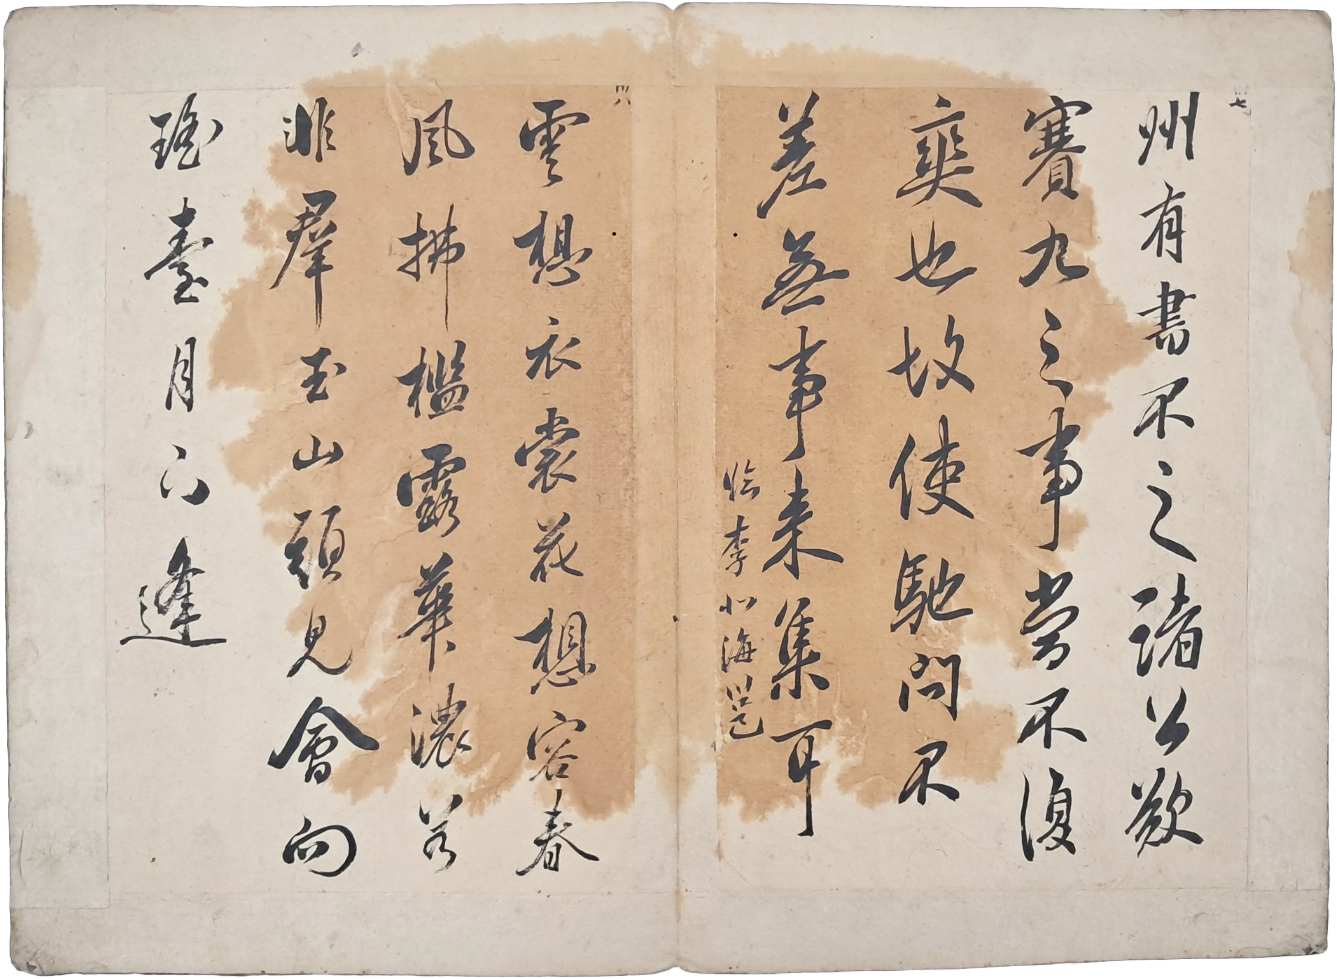 州有書不之諸公欲
賽九之事當不復
奕也故使馳問不
差無事来集耳
臨李北海邕
雲想衣裳花想容春
風拂檻露華濃若
非羣玉山頭見會向
瑤臺月下逢